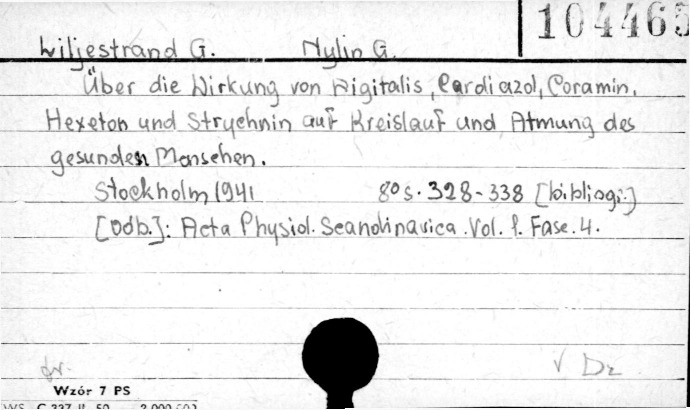 104465
Liljestrand G. Nylin G.
Über die Wirkung von Digitalis, Cardiazol, Coramin,
Hexeton und Strychnin auf Kreislauf und Atmung des
gesunden Menschen.
Stockholm 1941 8° s. 328-338 [bibliogr.]
[Odb.]: Acta Physiol. Scandinavica. Vol. 1. Fasc. 4.
dr. √ Dz
Wzór 7 PS